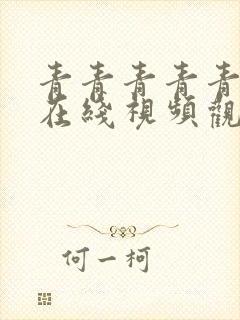 青青青青青
在綫視頻觀
何一柯